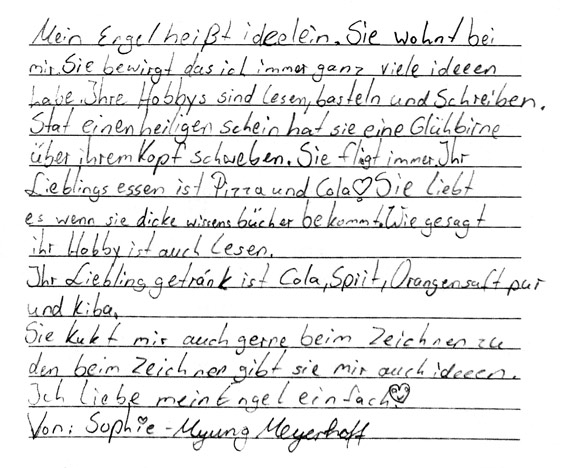 Mein Engel heißt ideelein. Sie wohnt bei
mir. Sie bewirgt das ich immer ganz viele ideeen
habe. Ihre Hobbys sind Lesen, basteln und Schreiben.
Stat einen heiligen schein hat sie eine Glühbirne
über ihrem Kopf schweben. Sie fligt immer. Ihr
Lieblings essen ist Pizza und Cola♡ Sie liebt
es wenn sie dicke wissens bücher bekommt. Wie gesagt
ihr Hobby ist auch Lesen.
Ihr Liebling getränk ist Cola, Spiit, Orangensaft pur
und Kiba.
Sie kukt mir auch gerne beim Zeichnen zu
den beim Zeichnen gibt sie mir auch ideeen.
Ich liebe mein Engel einfach!♡
Von: Sophie-Myung Meyerhoff